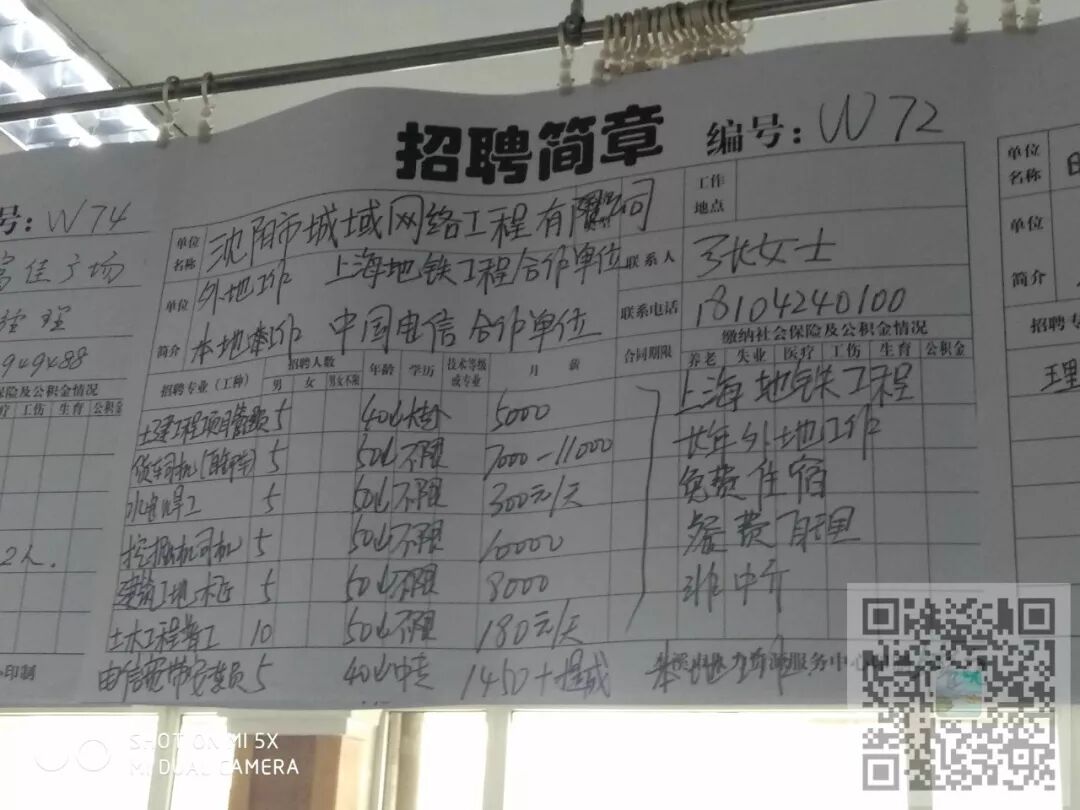 招聘简章 编号: W72
单位名称 沈阳市城域网络工程有限公司 工作地点
单位简介 外地工作 上海地铁工程合作单位 联系人 张女士
本地工作 中国电信合作单位 联系电话 18104240100
合同期限 缴纳社会保险及公积金情况
招聘专业(工种) 招聘人数 年龄 学历 技术等级或专业 月薪 养老 失业 医疗 工伤 生育 公积金
男 女 男女不限
土建工程项目 5 40以 5000 上海地铁工程
货车司机 5 50以 不限 7000-11000 长年外地工作
水电焊工 5 50以 不限 300元/天 免费住宿
挖掘机司机 5 50以 不限 10000 餐费自理
建筑工地木匠 5 50以 不限 8000 非中介
土木工程普工 10 50以 不限 180元/天
电信宽带安装员 5 40以 中专 1450+提成 本地工作
服务中心
号: W74
富佳广场
经理
949488
保险及公积金情况
疗 工伤 生育 公积金
2人.
印制
单位名称
单位简介
招聘专
理
SHOT ON MI 5X
MI DUAL CAMERA